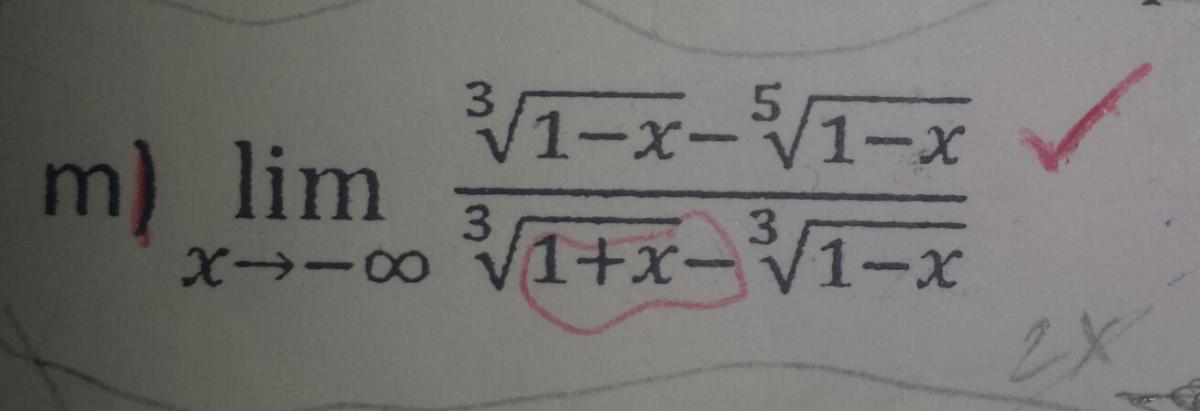 m) lim x→−∞ (∛(1−x) − ⁵√(1−x)) / (∛(1+x) − ∛(1−x))
2x